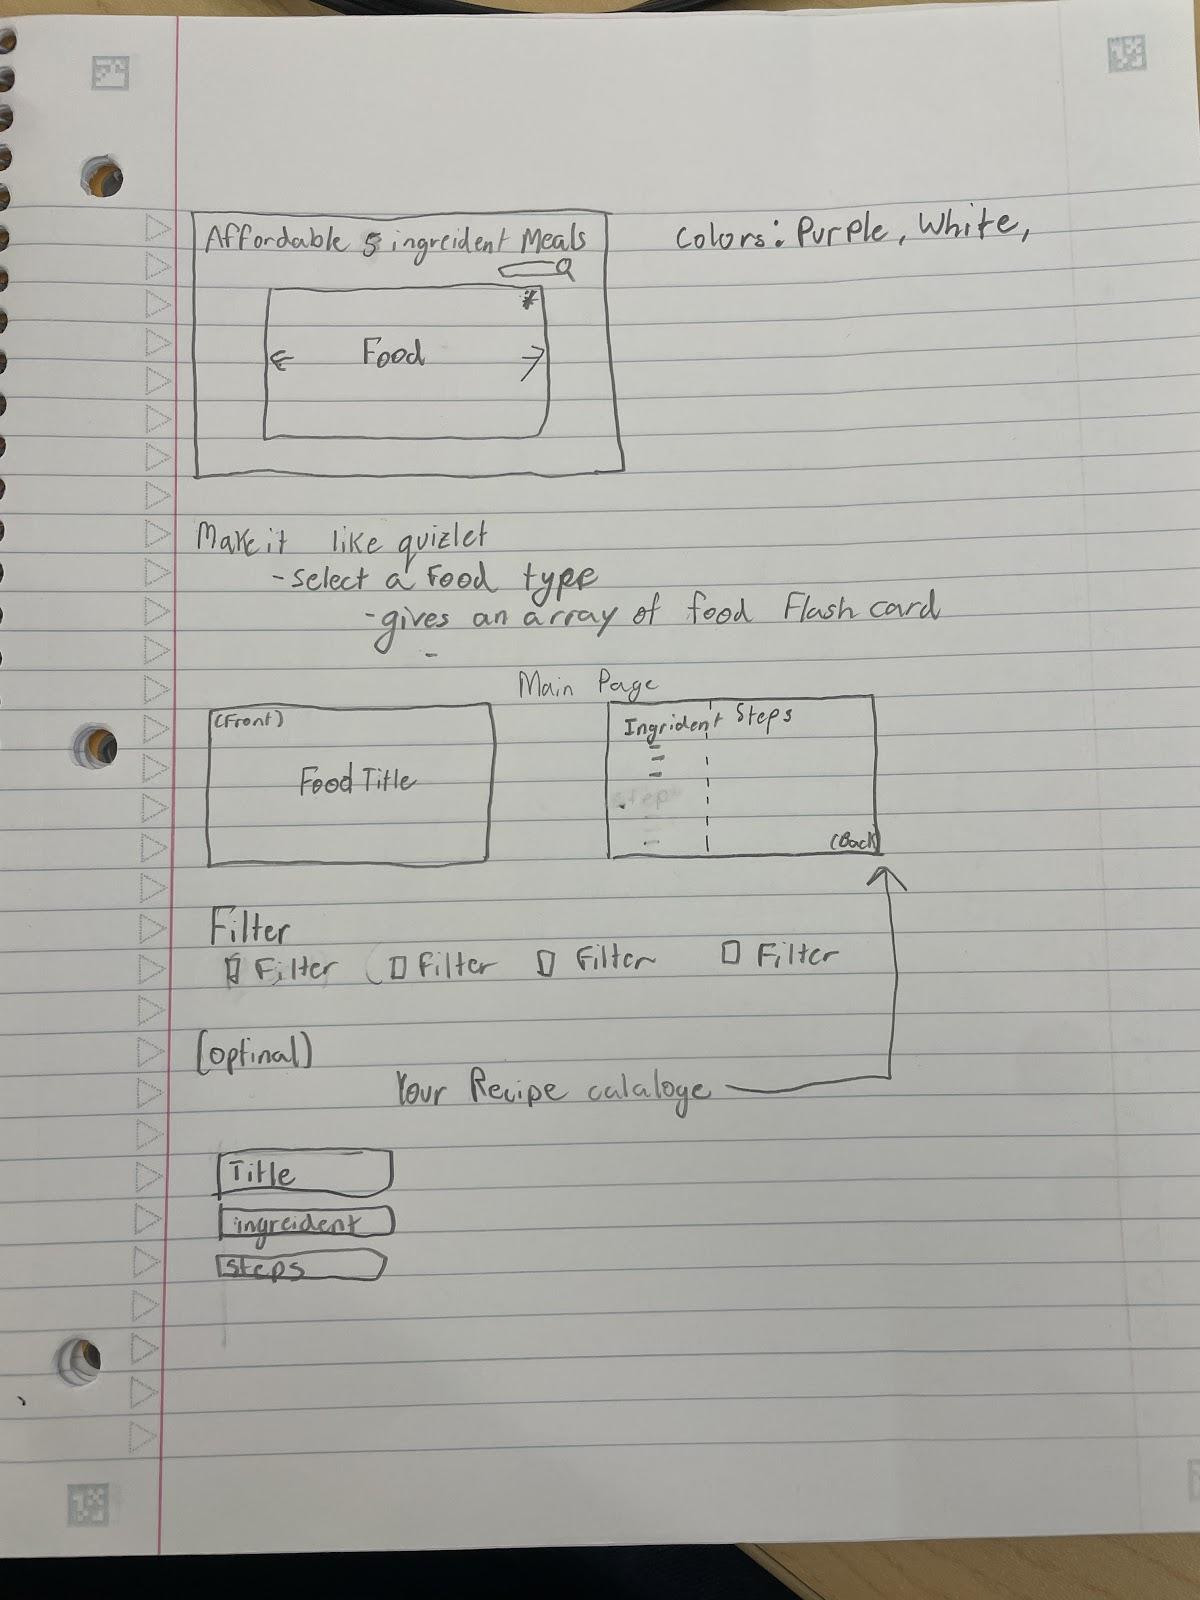 Affordable 5 ingreident Meals
Colors: Purple, White,
*
Food
Make it like quizlet
- Select a Food type
- gives an array of food Flash card
-
Main Page
(Front)
Food Title
Ingrident Steps
Step
(Back)
Filter
Filter Filter Filter Filter
(optinal)
Your Recipe cataloge
Title
ingreident
Steps